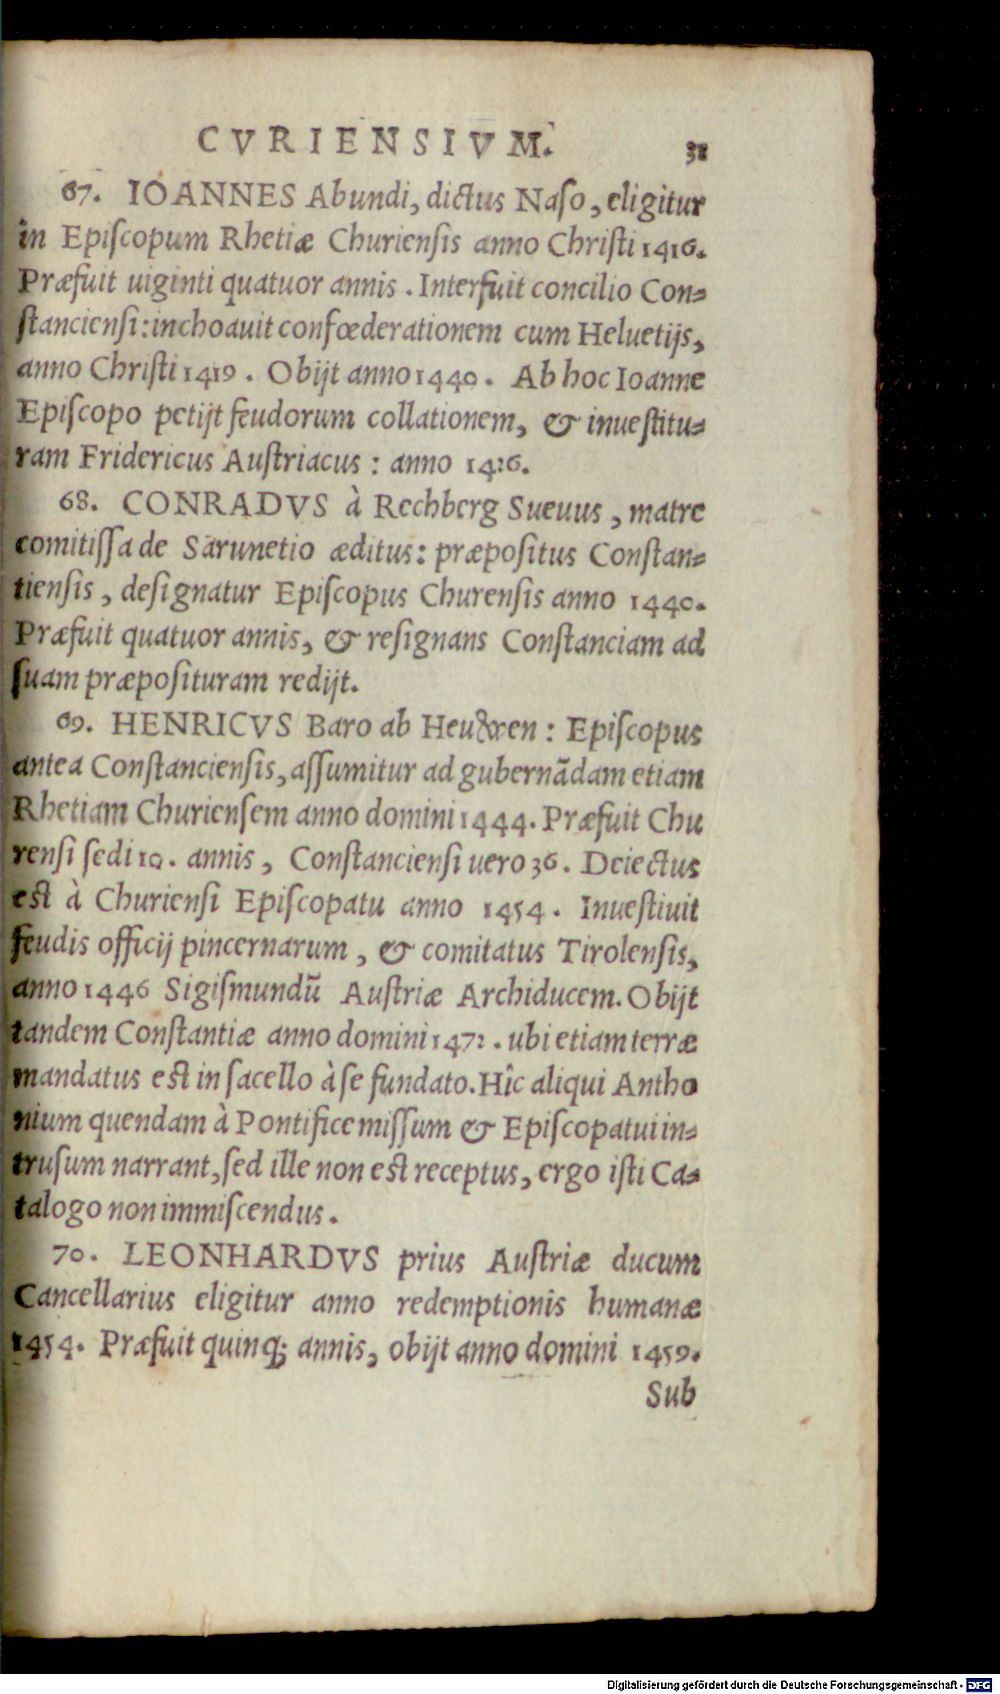 CVRIENSIVM. 31
67. IOANNES Abundi, dictus Naso, eligitur
in Episcopum Rhetiæ Churiensis anno Christi 1416.
Præfuit uiginti quatuor annis. Interfuit concilio Con-
stanciensi: inchoauit confœderationem cum Heluetijs,
anno Christi 1419. Obijt anno 1440. Ab hoc Ioanne
Episcopo petijt feudorum collationem, & inuestitu-
ram Fridericus Austriacus: anno 1426.
68. CONRADVS à Rechberg Sueuus, matre
comitissa de Sarunetio æditus: præpositus Constan-
tiensis, designatur Episcopus Churensis anno 1440.
Præfuit quatuor annis, & resignans Constanciam ad
suam præposituram redijt.
69. HENRICVS Baro ab Heuwen: Episcopus
antea Constanciensis, assumitur ad gubernãdam etiam
Rhetiam Churiensem anno domini 1444. Præfuit Chu
rensi sedi 10. annis, Constanciensi uero 36. Deiectus
est à Churiensi Episcopatu anno 1454. Inuestiuit
feudis officij pincernarum, & comitatus Tirolensis,
anno 1446 Sigismundũ Austriæ Archiducem. Obijt
tandem Constantiæ anno domini 1472. ubi etiam terræ
mandatus est in sacello à se fundato. Hîc aliqui Antho
nium quendam à Pontifice missum & Episcopatui in-
trusum narrant, sed ille non est receptus, ergo isti Ca-
talogo non immiscendus.
70. LEONHARDVS prius Austriæ ducum
Cancellarius eligitur anno redemptionis humanæ
1454. Præfuit quinq; annis, obijt anno domini 1459.
Sub
Digitalisierung gefördert durch die Deutsche Forschungsgemeinschaft - DFG